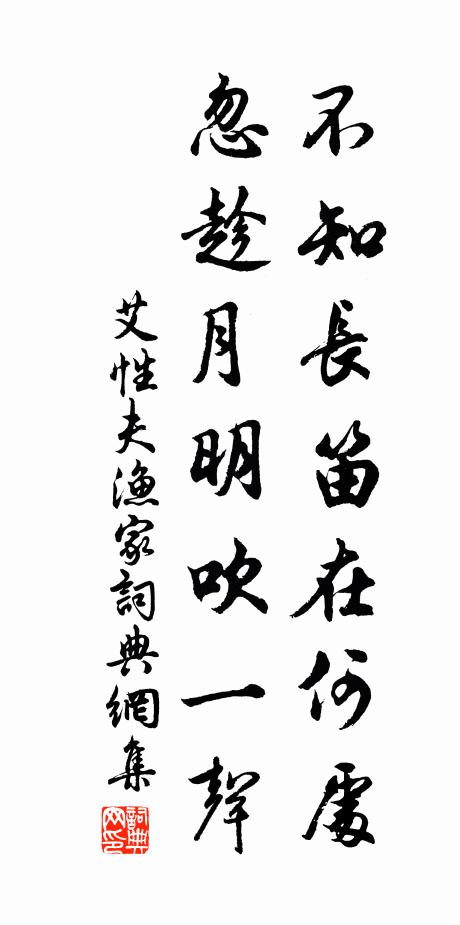 不知長笛在何處
忽趁月明吹一聲
艾性夫漁家詞典網集
詞典网印